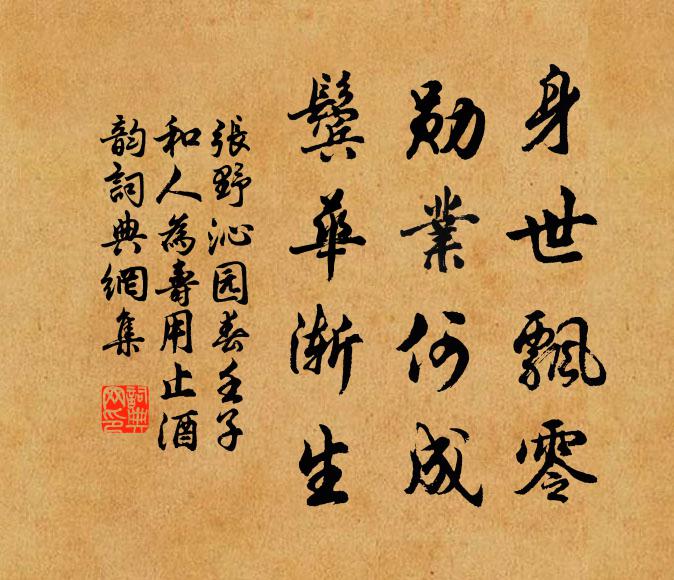 身世飄零
勋業何成
鬓華渐生
張野沁园春壬子
和人為壽用止酒
韵詞典網集
詞典
网印